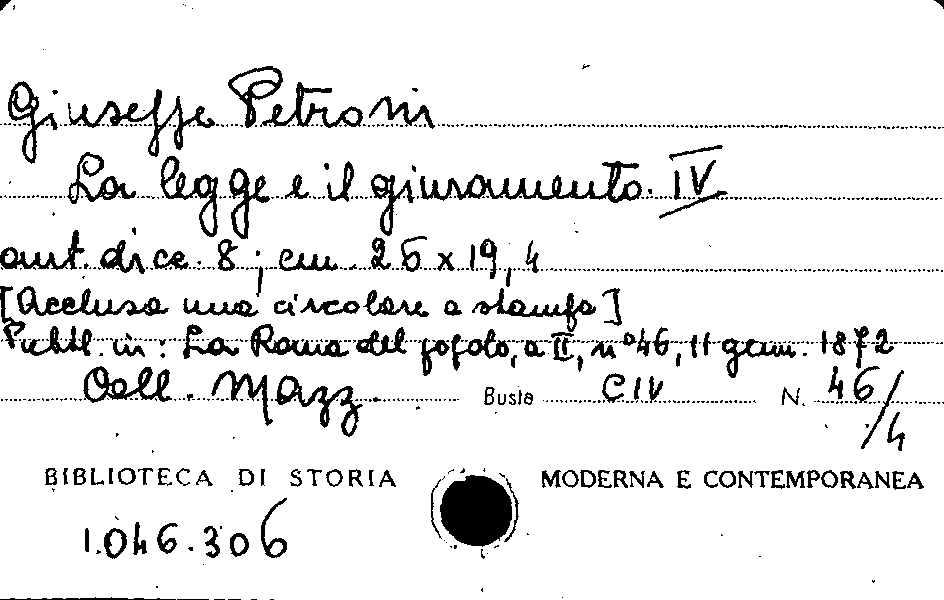 Giuseppe Petroni
La legge e il giuramento. IV
aut. di cc. 8; cm. 25 x 19,4
[Acclusa una circolare a stampa]
Pubbl. in: La Roma del popolo, a II, n° 46, 11 genn. 1872
Coll. Mazz. Busta CIV N. 46/4
BIBLIOTECA DI STORIA MODERNA E CONTEMPORANEA
1.046.306